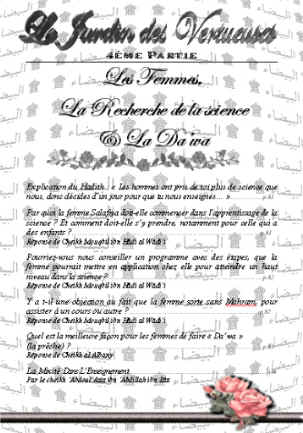 Le Jardin des Vertueuses
4ÈME PARTIE
Les Femmes,
La Recherche de la science
& La Da'wa
Explication du Hadith... « Les hommes ont pris de toi plus de science que
nous, donc décides d'un jour pour que tu nous enseignes... »
Par quoi la femme Salafiya doit-elle commencer dans l'apprentissage de la
science ? Et comment doit-elle s'y prendre, notamment pour celle qui a
des enfants ?
Réponse de Cheikh Mouqbil ibn Hadi al Wadi'i
Pourriez-vous nous conseiller un programme avec des étapes, que la
femme pourrait mettre en application chez elle pour atteindre un haut
niveau dans la science ?
Réponse de Cheikh Mouqbil ibn Hadi al Wadi'i
Y a t-il une objection au fait que la femme sorte sans Mahram, pour
assister à un cours ou autre ?
Réponse de Cheikh Mouqbil ibn Hadi al Wadi'i
Quel est la meilleure façon pour les femmes de faire « Da'wa »
(la prêche) ?
Réponse de Cheikh al Albany
La Mixité Dans L'Enseignement
Par le cheikh 'Abdoul 'Aziz ibn 'Abdillah ibn Baz